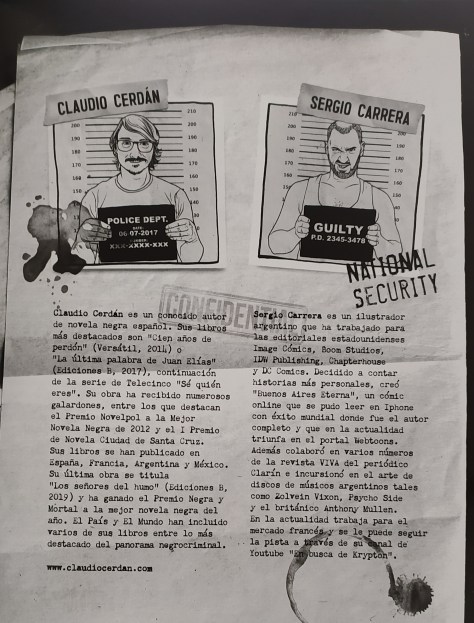 CLAUDIO CERDÁN
POLICE DEPT.
DATE:
06-07-2017
XXX-XXXX-XXX
Claudio Cerdán es un conocido autor
de novela negra español. Sus libros
más destacados son "Cien años de
perdón" (Versátil, 2014) o
"La última palabra de Juan Elías"
(Ediciones B, 2017), continuación
de la serie de Telecinco "Sé quién
eres". Su obra ha recibido numerosos
galardones, entre los que destacan
el Premio Novelpol a la Mejor
Novela Negra de 2012 y el I Premio
de Novela Ciudad de Santa Cruz.
Sus libros se han publicado en
España, Francia, Argentina y México.
Su última obra se titula
"Los señores del humo" (Ediciones B,
2019) y ha ganado el Premio Negra y
Mortal a la mejor novela negra del
año. El País y El Mundo han incluido
varios de sus libros entre lo más
destacado del panorama negrocriminal.
www.claudiocerdan.com
SERGIO CARRERA
GUILTY
P.D. 2345-3478
NATIONAL
SECURITY
Sergio Carrera es un ilustrador
argentino que ha trabajado para
las editoriales estadounidenses
Image Cómics, Boom Studios,
IDW Publishing, Chapterhouse
y DC Comics. Decidido a contar
historias más personales, creó
"Buenos Aires Eterna", un cómic
online que se pudo leer en Iphone
con éxito mundial donde fue el autor
completo y que en la actualidad
triunfa en el portal Webtoons.
Además colaboró en varios números
de la revista VIVA del periódico
Clarín e incursionó en el arte de
discos de músicos argentinos tales
como Zolvein Vixon, Psycho Side
y el británico Anthony Mullen.
En la actualidad trabaja para el
mercado francés y se le puede seguir
la pista a través de su canal de
Youtube "En busca de Krypton".